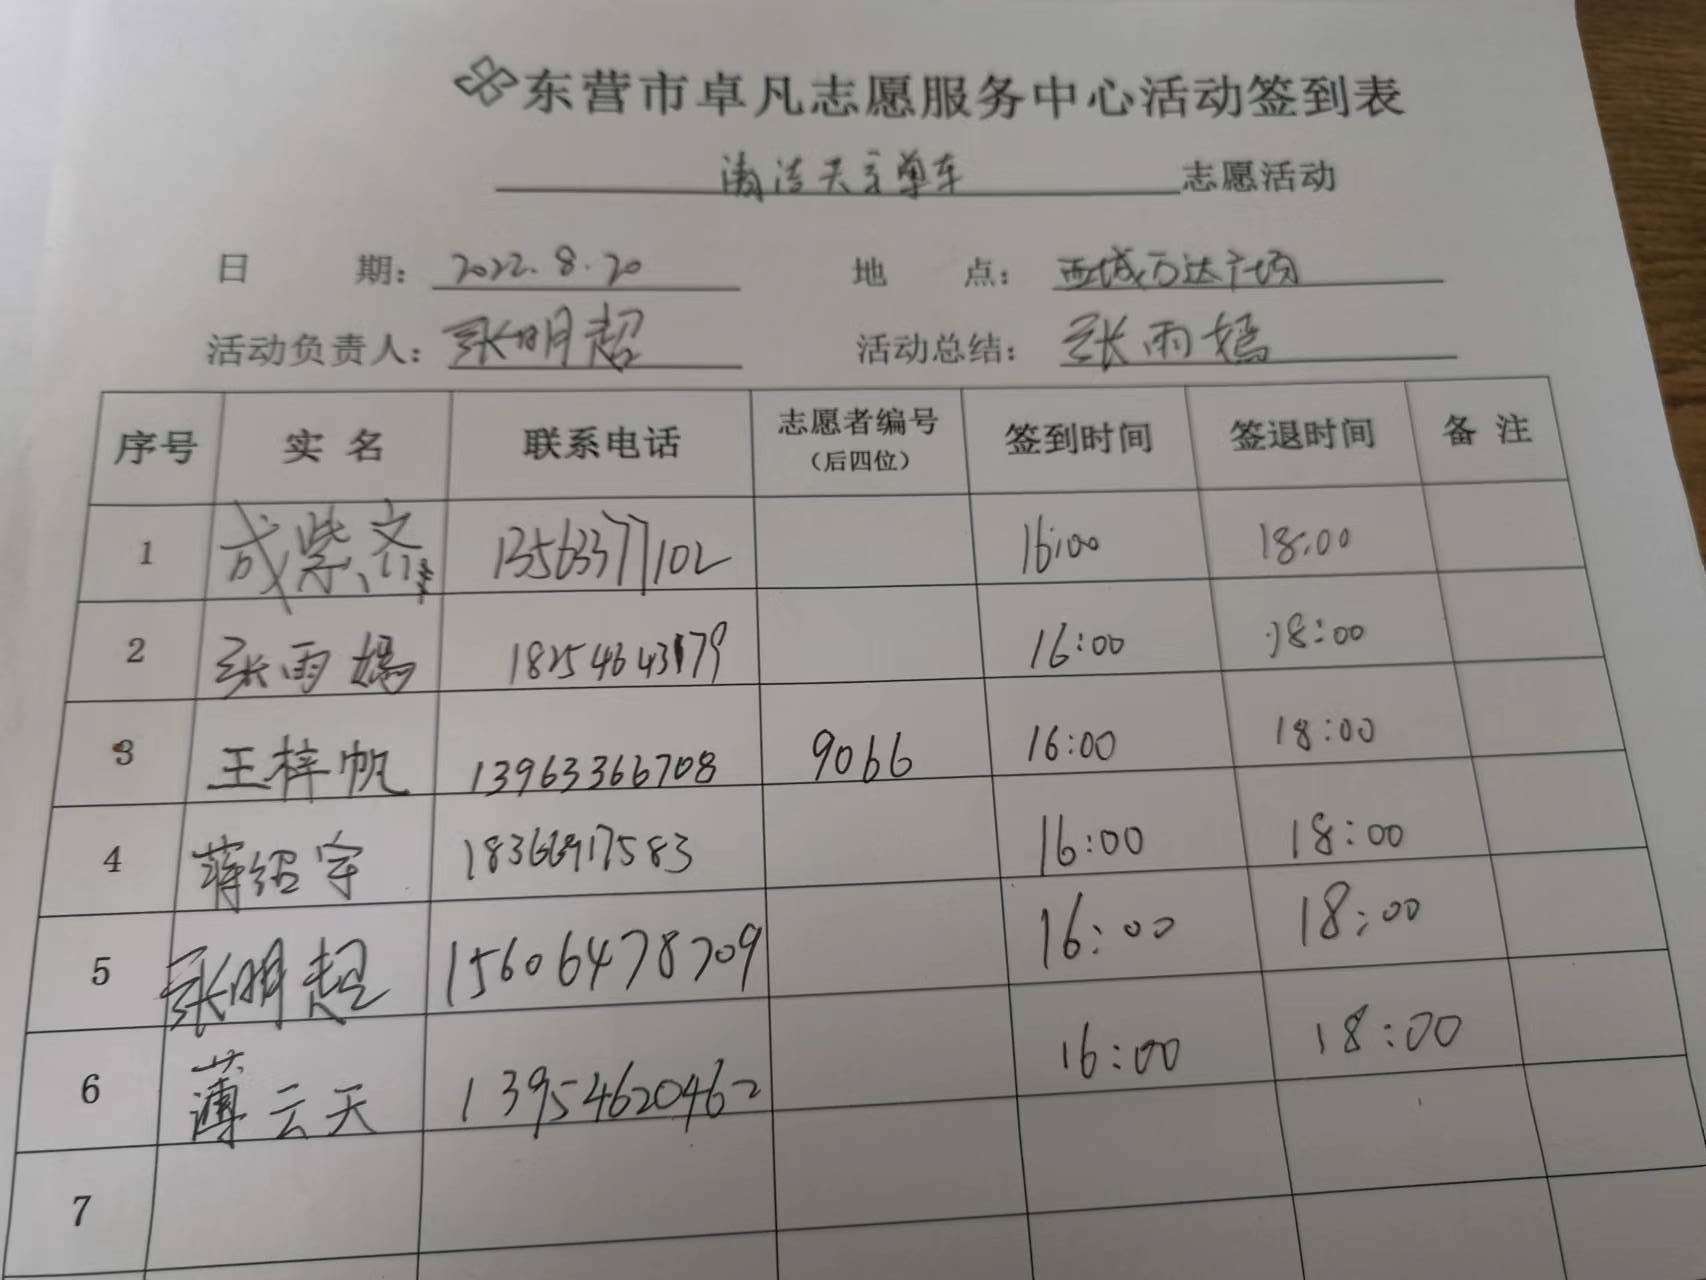 东营市卓凡志愿服务中心活动签到表
清洁共享单车 志愿活动
日期: 2022.8.20 地点: 西城万达广场
活动负责人: 张明超 活动总结: 张雨嫣
序号 实名 联系电话 志愿者编号(后四位) 签到时间 签退时间 备注
1 成紫 13563377102 16:00 18:00
2 张雨嫣 18254643179 16:00 18:00
3 王梓帆 13963366708 9066 16:00 18:00
4 蒋绍宇 18366917583 16:00 18:00
5 张明超 15606478709 16:00 18:00
6 薄云天 13954620462 16:00 18:00
7